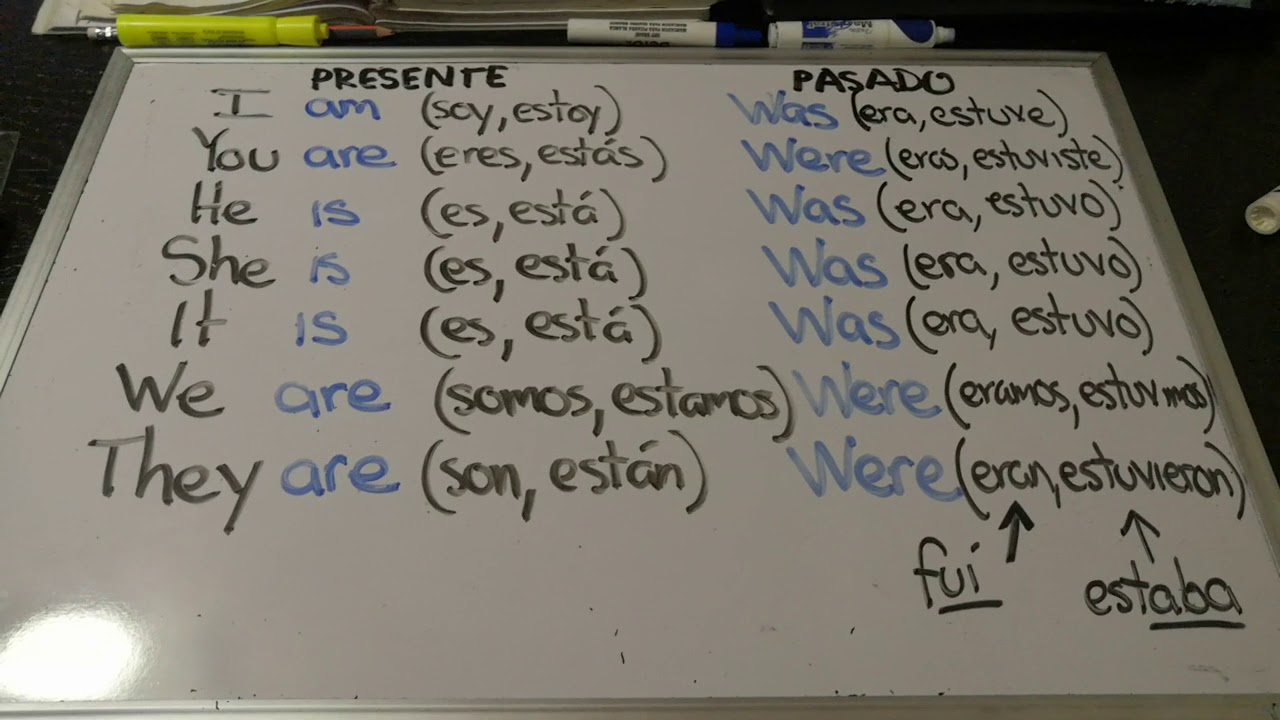 PRESENTE PASADO
I am (soy, estoy) Was (era, estuve)
You are (eres, estás) Were (eras, estuviste)
He is (es, está) Was (era, estuvo)
She is (es, está) Was (era, estuvo)
It is (es, está) Was (era, estuvo)
We are (somos, estamos) Were (eramos, estuvimos)
They are (son, están) Were (eran, estuvieron)
fui estaba